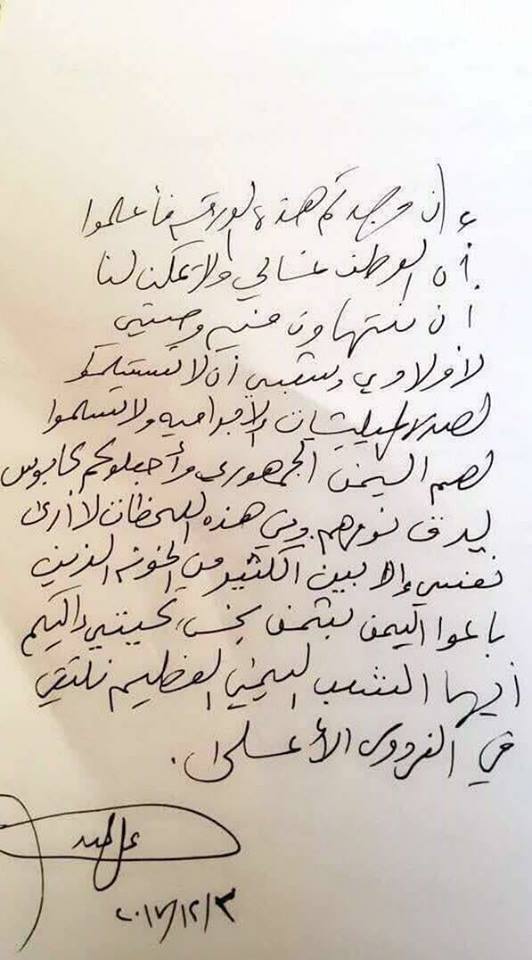 إن وجدتم هذه الورقه فأعلموا
أن الوطن غالي ولا يمكن لنا
أن نتهاون فيه وصيتي
لأولادي وشعبي أن لا تستسلمو
لهم اليمن الجمهوري وأجعلوكم كابوس
نومهم. وفي هذه اللحظات لا أرى
نفسي إلا بين الكثير من الخونه الذين
باعوا اليمن بثمن بخس، تحيتي إليكم
أيها الشعب اليمني العظيم نلتقي
في الفردوس الأعلى.
٢٠١٧/١٢/٣